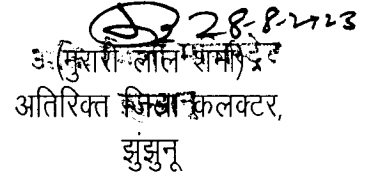 28-8-2023
(मुरारी लाल शर्मा)
अतिरिक्त जिला कलक्टर,
झुंझुनू